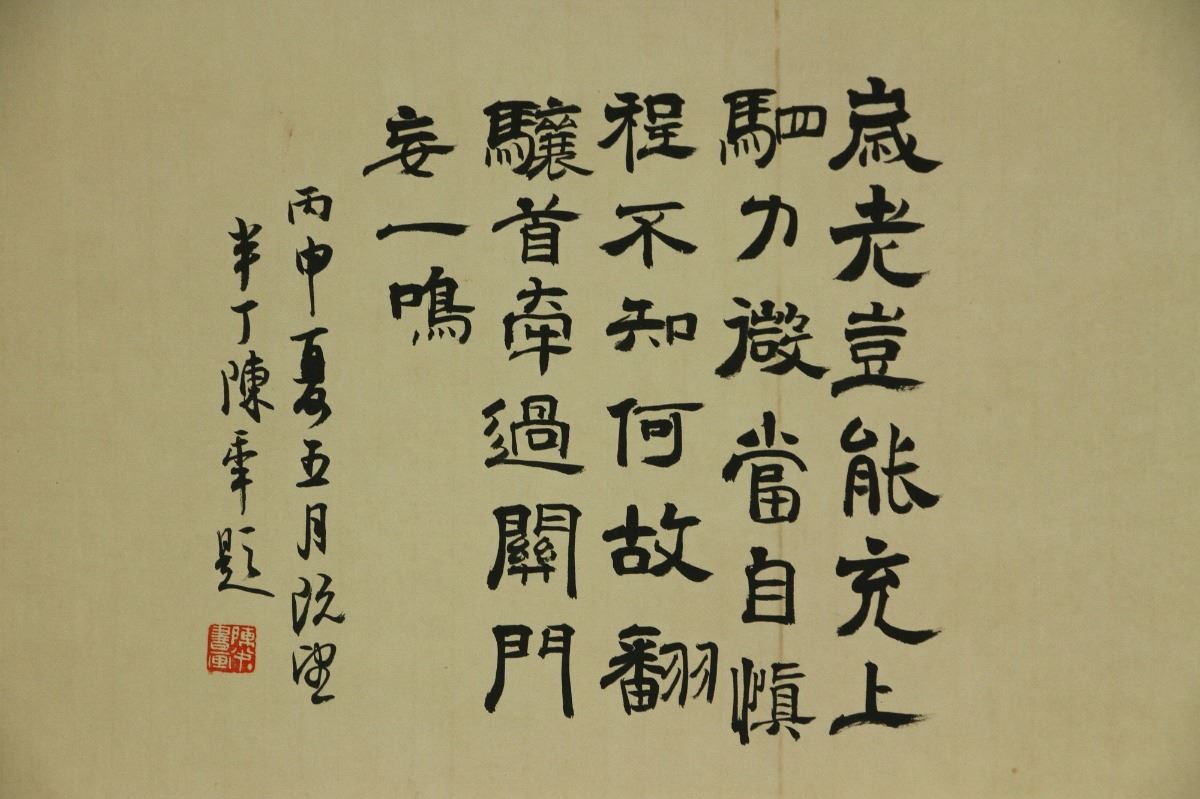 歲老豈能充上
駟力微當自慎
程不知何故翻
驤首牽過關門
妄一鳴
丙申夏五月既望
半丁陳年題